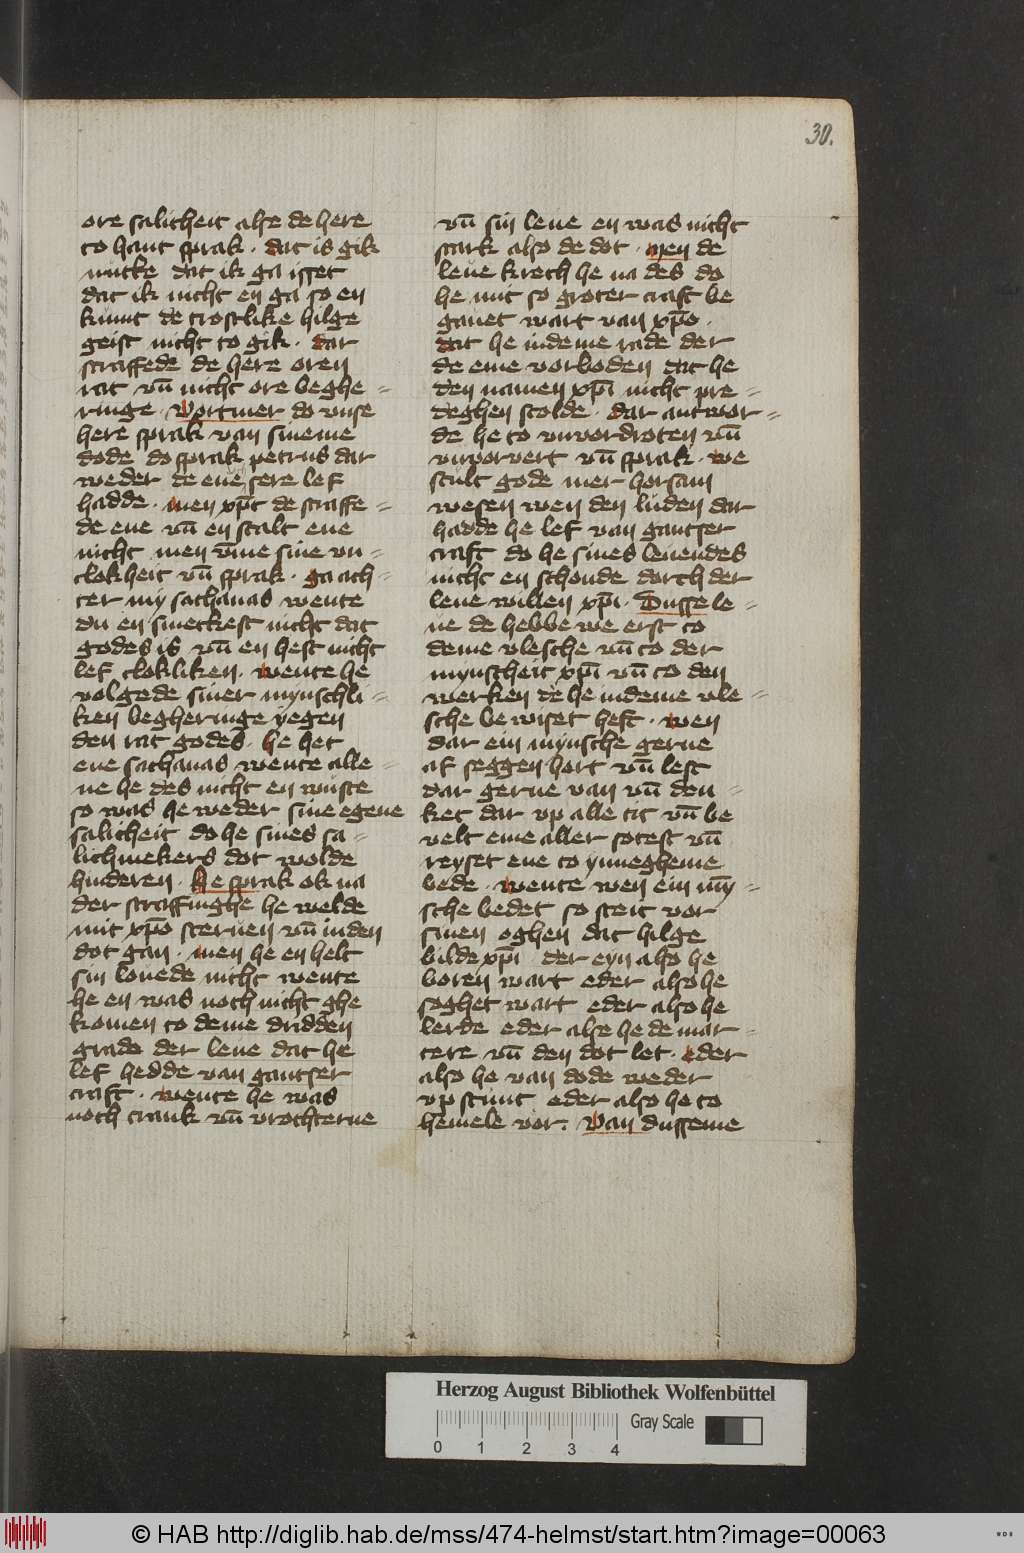 30.
ore salicheit alse de here
to hant sprak . dat is gik
nutte dat ik ga isset
dat ik nicht en ga so en
kumt de trostlike hilge
geist nicht to gik . dar
straffede de here oren
rat vn̄ nicht ore beghe =
ringe . Vortmer do vnse
here sprak van sineme
dode do sprak petrus dar
weder de ene sere lef
hadde . men xp̄c de straffe =
de ene vn̄ en scalt ene
nicht men vm̄e sine vn =
clokheit vn̄ sprak . ga ach =
ter my sathanas wente
du en smeckest nicht dat
godes is vn̄ en hest nicht
lef clokliken . wente he
volgede siner mynschli =
ken begheringe yegen
den rat godes . he het
ene sathanas wente alle =
ne he des nicht en wuste
so was he weder sine egene
salicheit do he sines sa =
lichmekers dot wolde
hinderen . He sprak ok na
der straffinghe he welde
mit xp̄o steruen vn̄ in den
dot gan . men he en helt
sin louede nicht wente
he en was noch nicht ghe
komen to deme dridden
grade der leue dat he
lef hedde van gantser
craft . wente he was
noch crank vn̄ vrochterne
vn̄ sin leue en was nicht
stark also de dot . men de
leue krech he na des do
he mit so groter craft be
gauet wart van xp̄o .
dat he in deme rade der
de eme vorboden dat he
den namen xp̄i nicht pre =
deghen scolde . dar antwor =
de he to vnvordroten vn̄
vnvorvert vn̄ sprak . we
scult gode mer horsam
wesen wen den luden dar
hadde he lef van gantser
craft do he sines leuendes
nicht en schonde dorch der
leue willen xp̄i . Dusse le =
ue de hebbe we erst to
deme vlesche vn̄ to der
mynscheit xp̄i vn̄ to den
werken de he in deme vle =
sche bewiset heft . wen
dar ein mynsche gerne
af seggen hort vn̄ lest
dar gerne van vn̄ den =
ket dar vp alle tit vn̄ be
velt eme aller sotest vn̄
reyset ene to ynnegheme
bede . wente wen ein mȳ =
sche bedet so steit vor
sinen oghen dat hilge
bilde xp̄i der eyn also he
boren wart eder also he
soghet wart eder also he
lerde eder alse he de mar =
tere vn̄ den dot let . eder
also he van dode weder
vp stunt eder also he to
hemele vor . Van dusseme
Herzog August Bibliothek Wolfenbüttel
Gray Scale
0 1 2 3 4
© HAB http://diglib.hab.de/mss/474-helmst/start.htm?image=00063